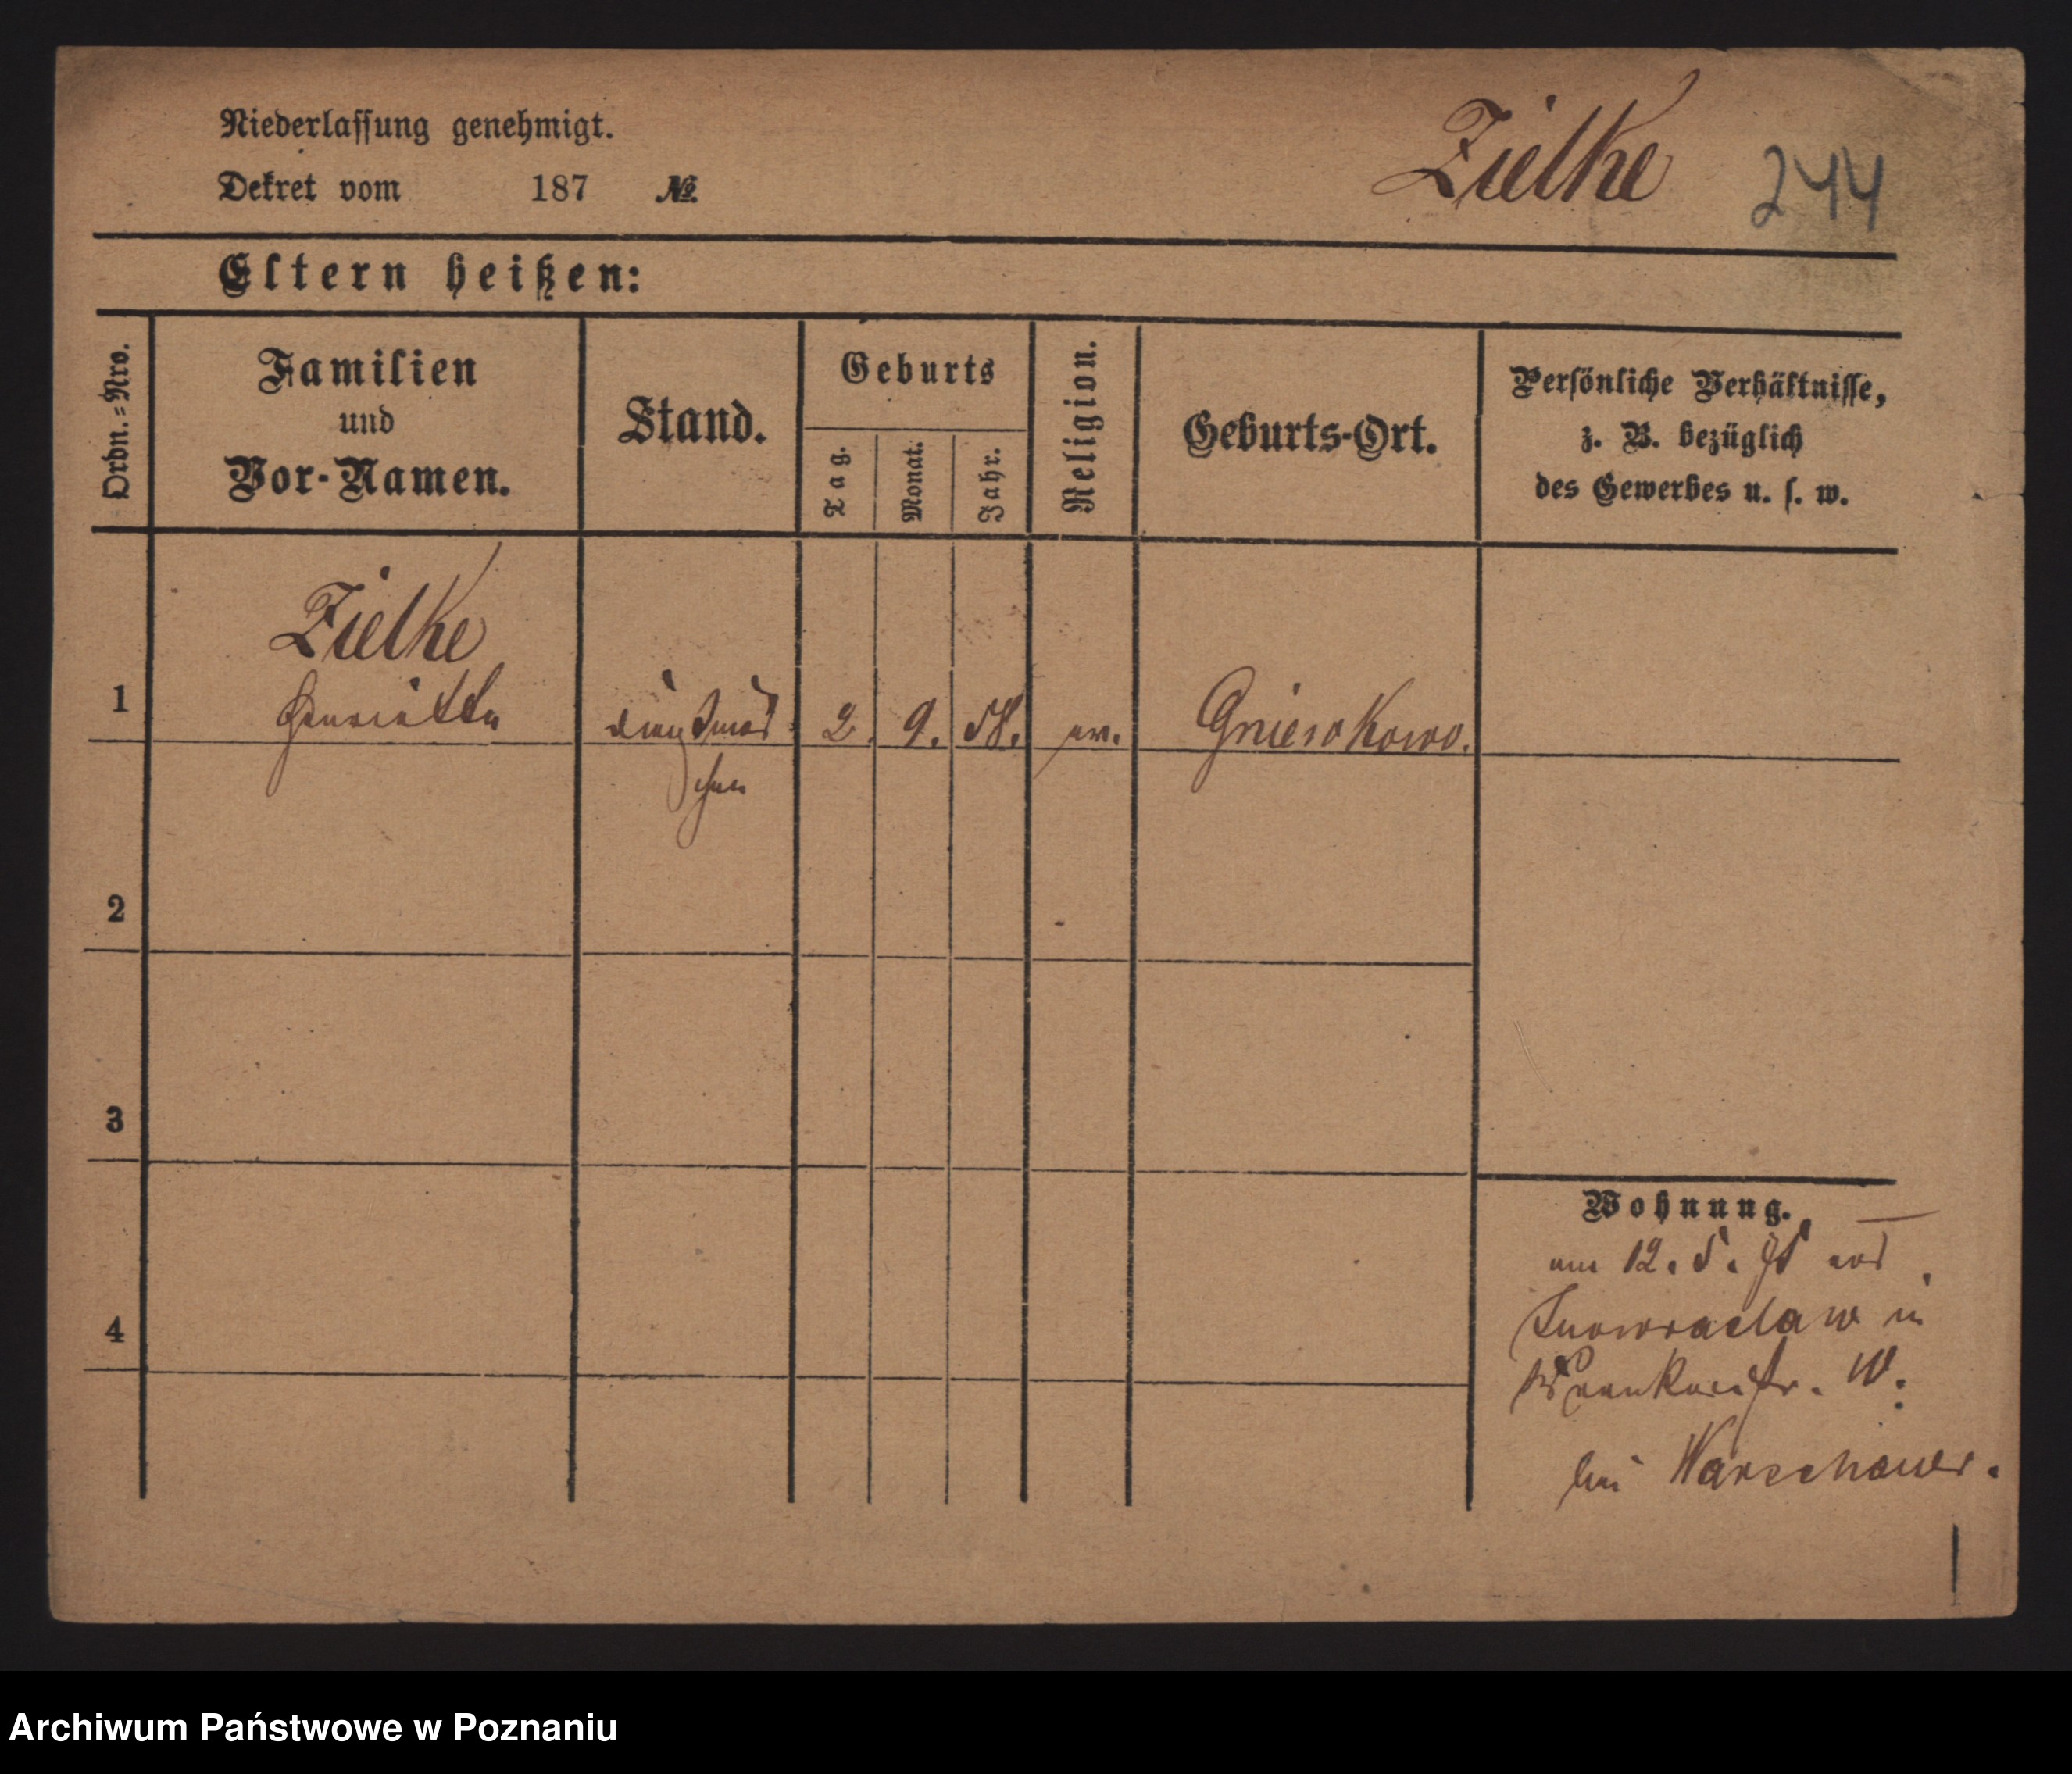 Niederlassung genehmigt.
Dekret vom 187 №
Zielke 244
Eltern heißen:
Ordn.=Nro.
Familien
und
Vor-Namen.
Stand.
Geburts
Tag.
Monat.
Jahr.
Religion.
Geburts-Ort.
Persönliche Verhältnisse,
z. B. bezüglich
des Gewerbes u. s. w.
Zielke
1 Henriette 2. 9. 58. ev. Gniewkowo.
2
3
4
Wohnung.
am 12. 5.
Inowraclaw in
bei Warschauer.
Archiwum Państwowe w Poznaniu